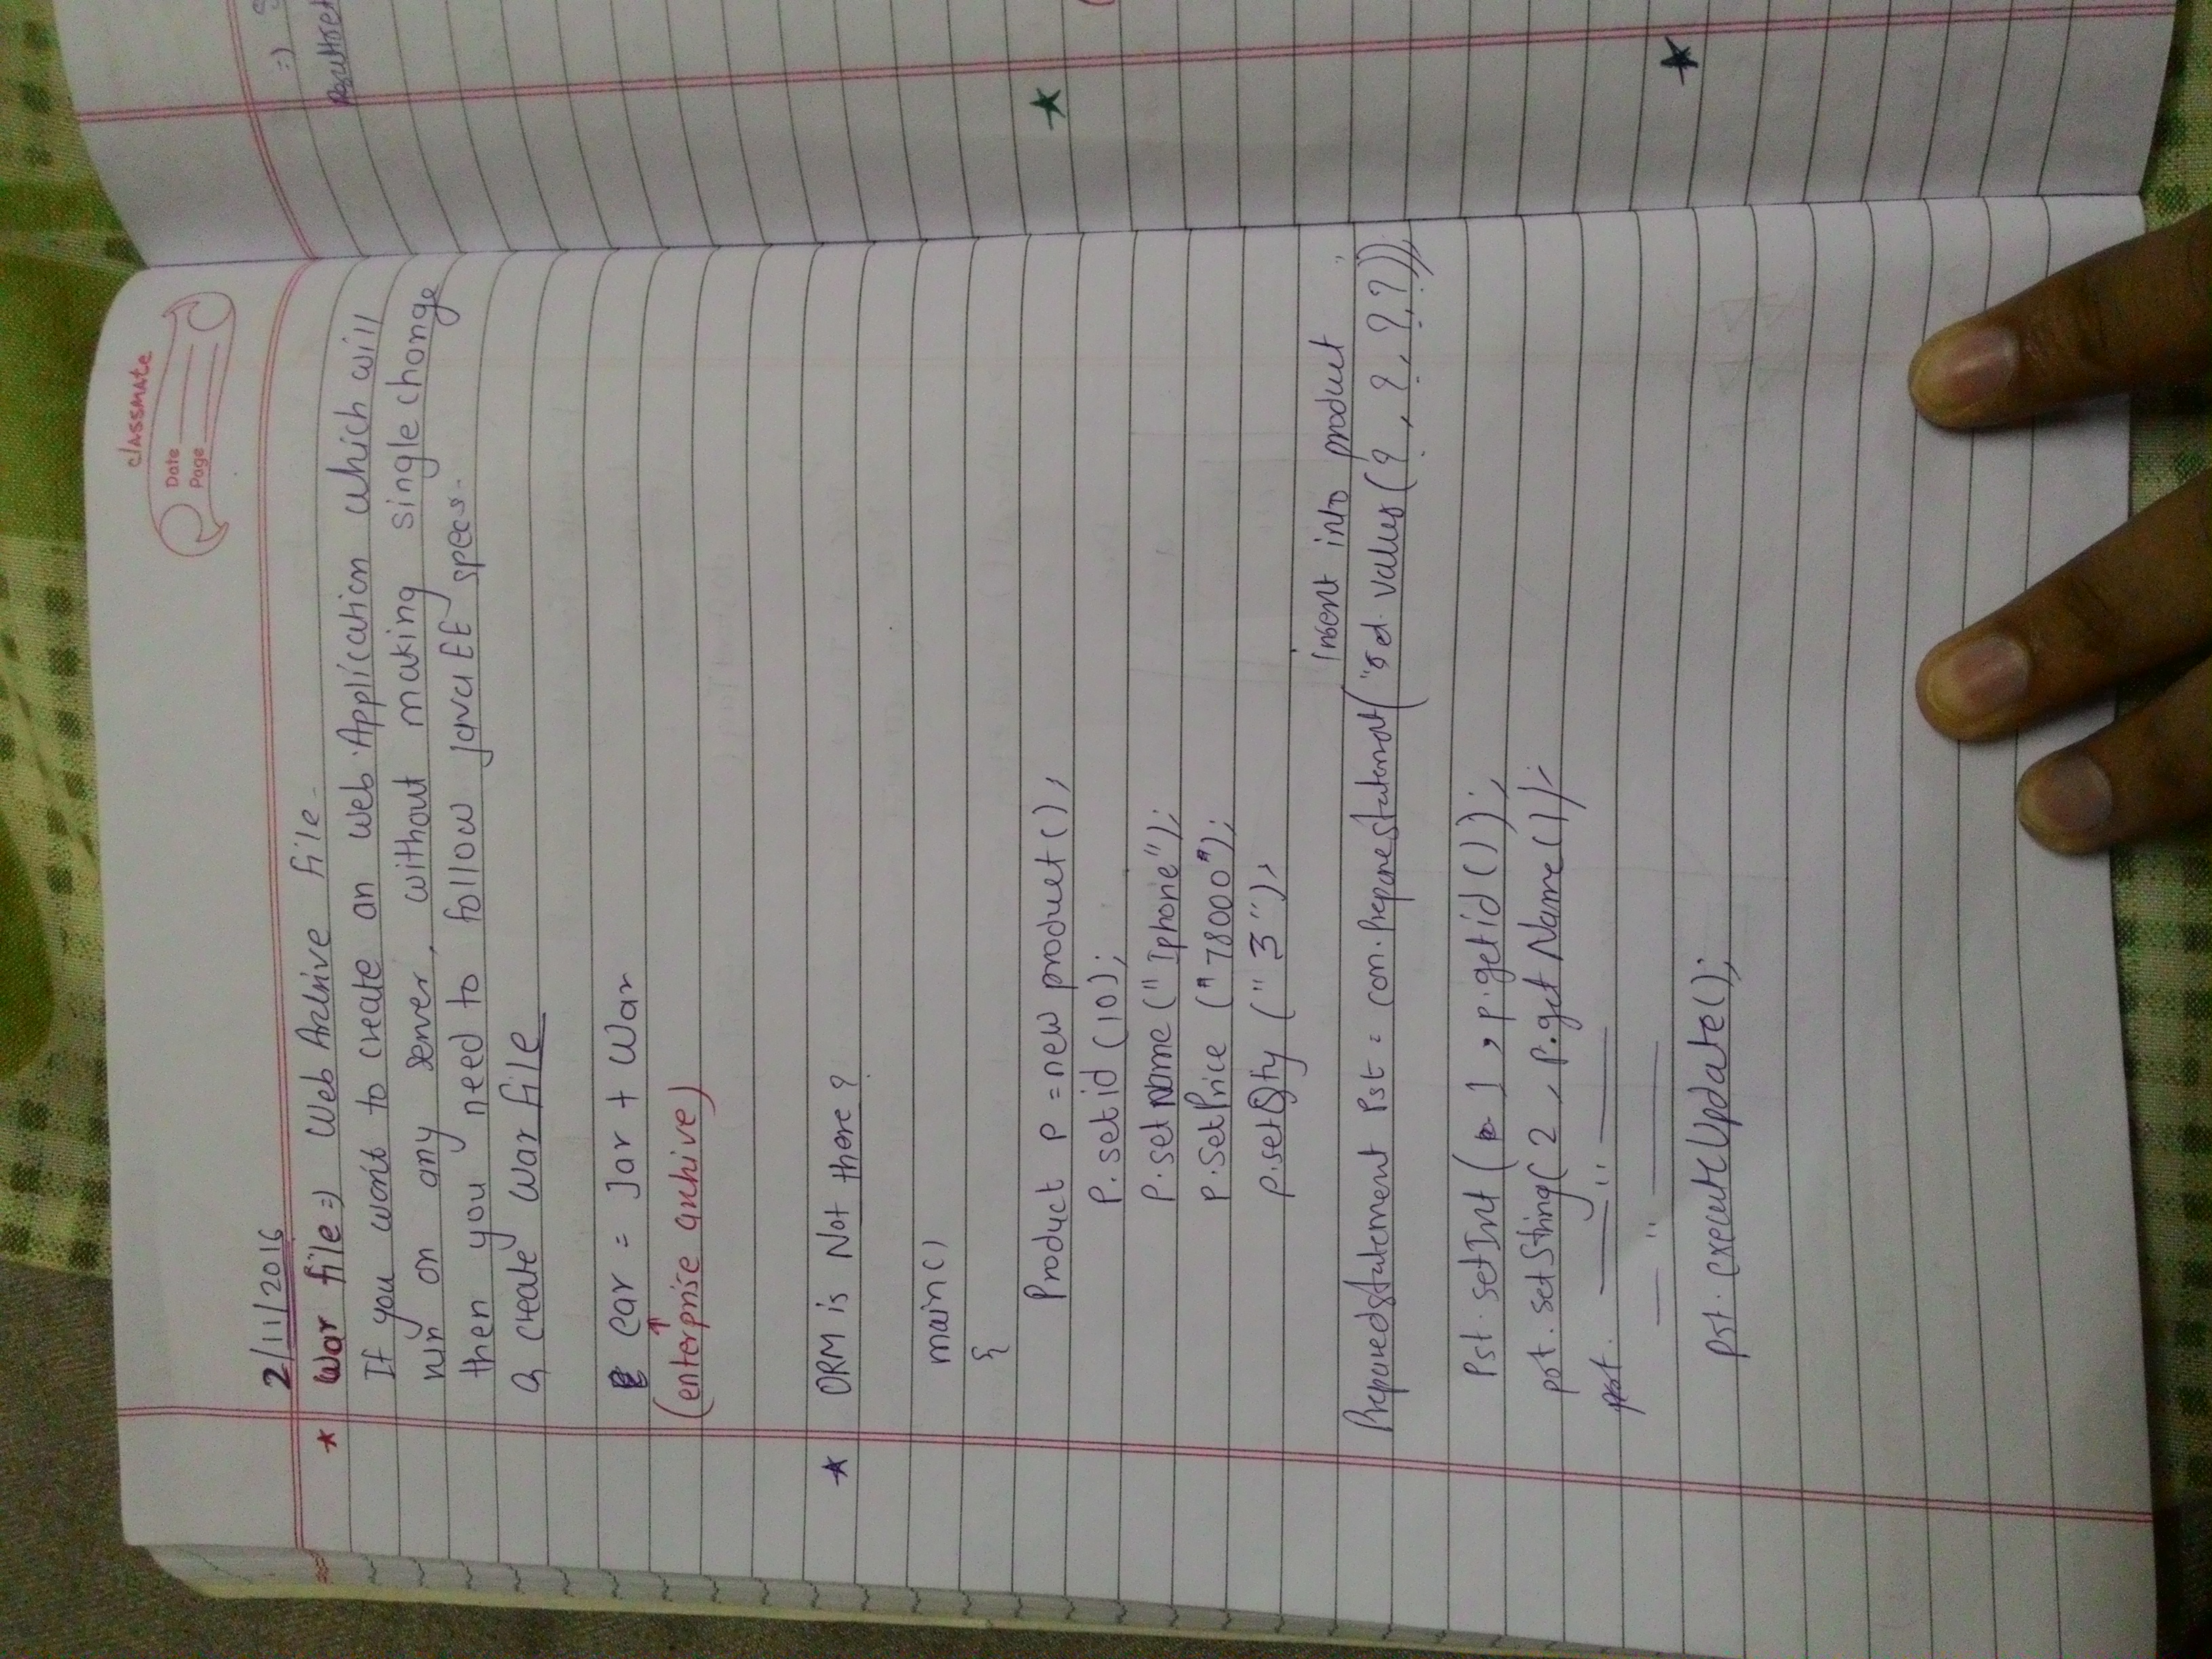 classmate
Date
Page
2/11/2016
★ War file => Web Archive file -
If you want to create an Web Application which will
run on any server, without making single change
then you need to follow java EE specs-
& create War file
ear = Jar + War
↑
(enterprise archive)
★ ORM is Not there ?
main()
{
Product p = new product();
p.setid (10);
p.setName ("Iphone");
p.setPrice ("78000");
p.setQty ("3");
Insert into product
Preparedstatement Pst = con.Preparestatement( " values (?, ?, ?, ?));
Pst. setInt ( 1 , p.getid ());
pst. setString( 2 , p.get Name());
pst. —— " ——
—— " ——
pst. executeUpdate();
=>
Resultset
★
★